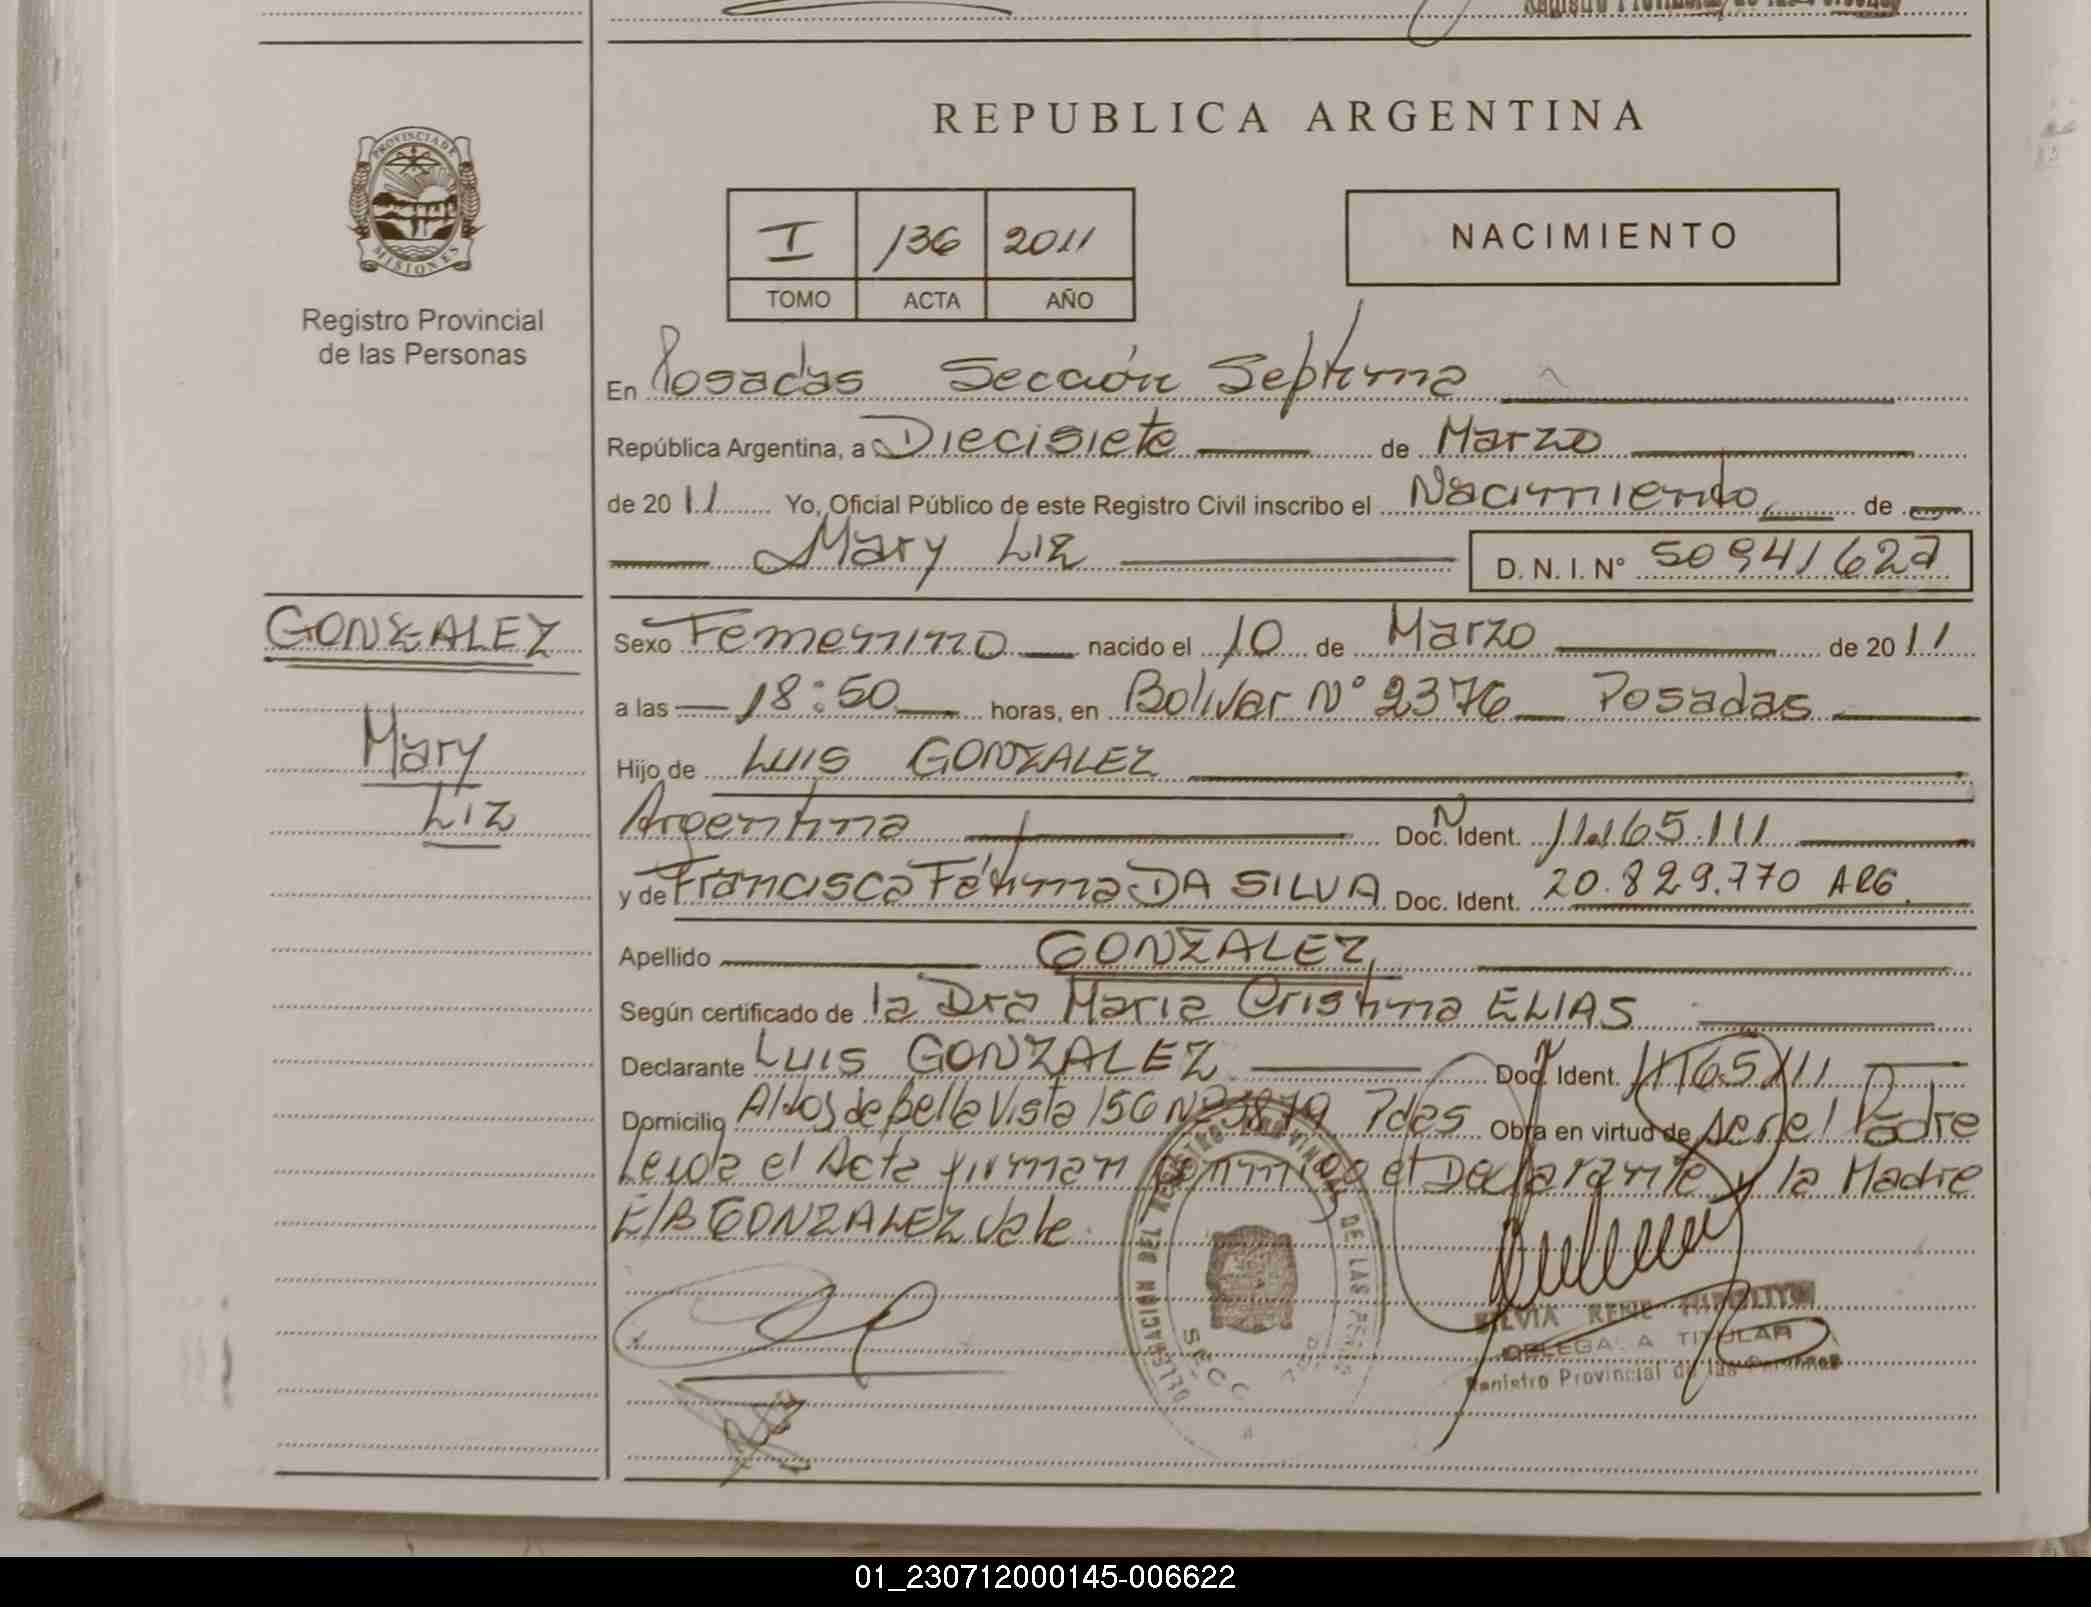 Registro Provincial de las Personas
REPUBLICA ARGENTINA
PROVINCIA DE
MISIONES
Registro Provincial
de las Personas
I 136 2011
TOMO ACTA AÑO
NACIMIENTO
En Posadas Sección Septima
República Argentina, a Diecisiete de Marzo
de 20 11 Yo, Oficial Público de este Registro Civil inscribo el Nacimiento de
Mary Liz D. N. I. N° 50941627
GONZALEZ
Mary
Liz
Sexo Femenino nacido el 10 de Marzo de 20 11
a las 18:50 horas, en Bolivar N° 2376 Posadas
Hijo de Luis GONZALEZ
Argentina Doc. N Ident. 11.165.111
y de Francisca Fátima DA SILVA Doc. Ident. 20.829.770 ARG.
Apellido GONZALEZ
Según certificado de la Dra Maria Cristina ELIAS
Declarante Luis GONZALEZ Doc. Ident. 11165111
Domicilio Altos de Bella Vista 156 Pdas Obra en virtud de ser el Padre
Leida el Acta firman conmigo el Declarante y la Madre
E/B GONZALEZ Vale
DELEGACION DEL REGISTRO PROVINCIAL DE LAS PERSONAS
SECC
SILVIA RENE HIPOLITO
DELEGADA TITULAR
Registro Provincial de las Personas
01_230712000145-006622